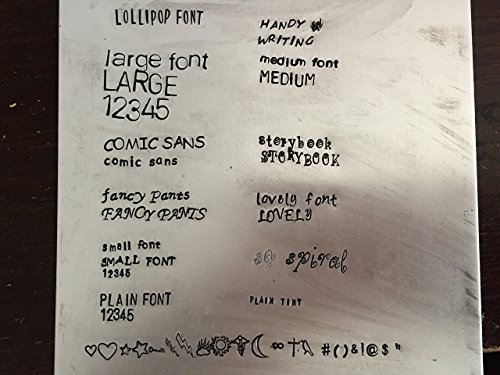 LOLLIPOP FONT
HANDY
WRITING
large font
LARGE
12345
medium font
MEDIUM
COMIC SANS
comic sans
storybook
STORYBOOK
fancy pants
FANCY PANTS
lovely font
LOVELY
small font
SMALL FONT
12345
so spiral
PLAIN FONT
12345
PLAIN TINY
#()&!@$"